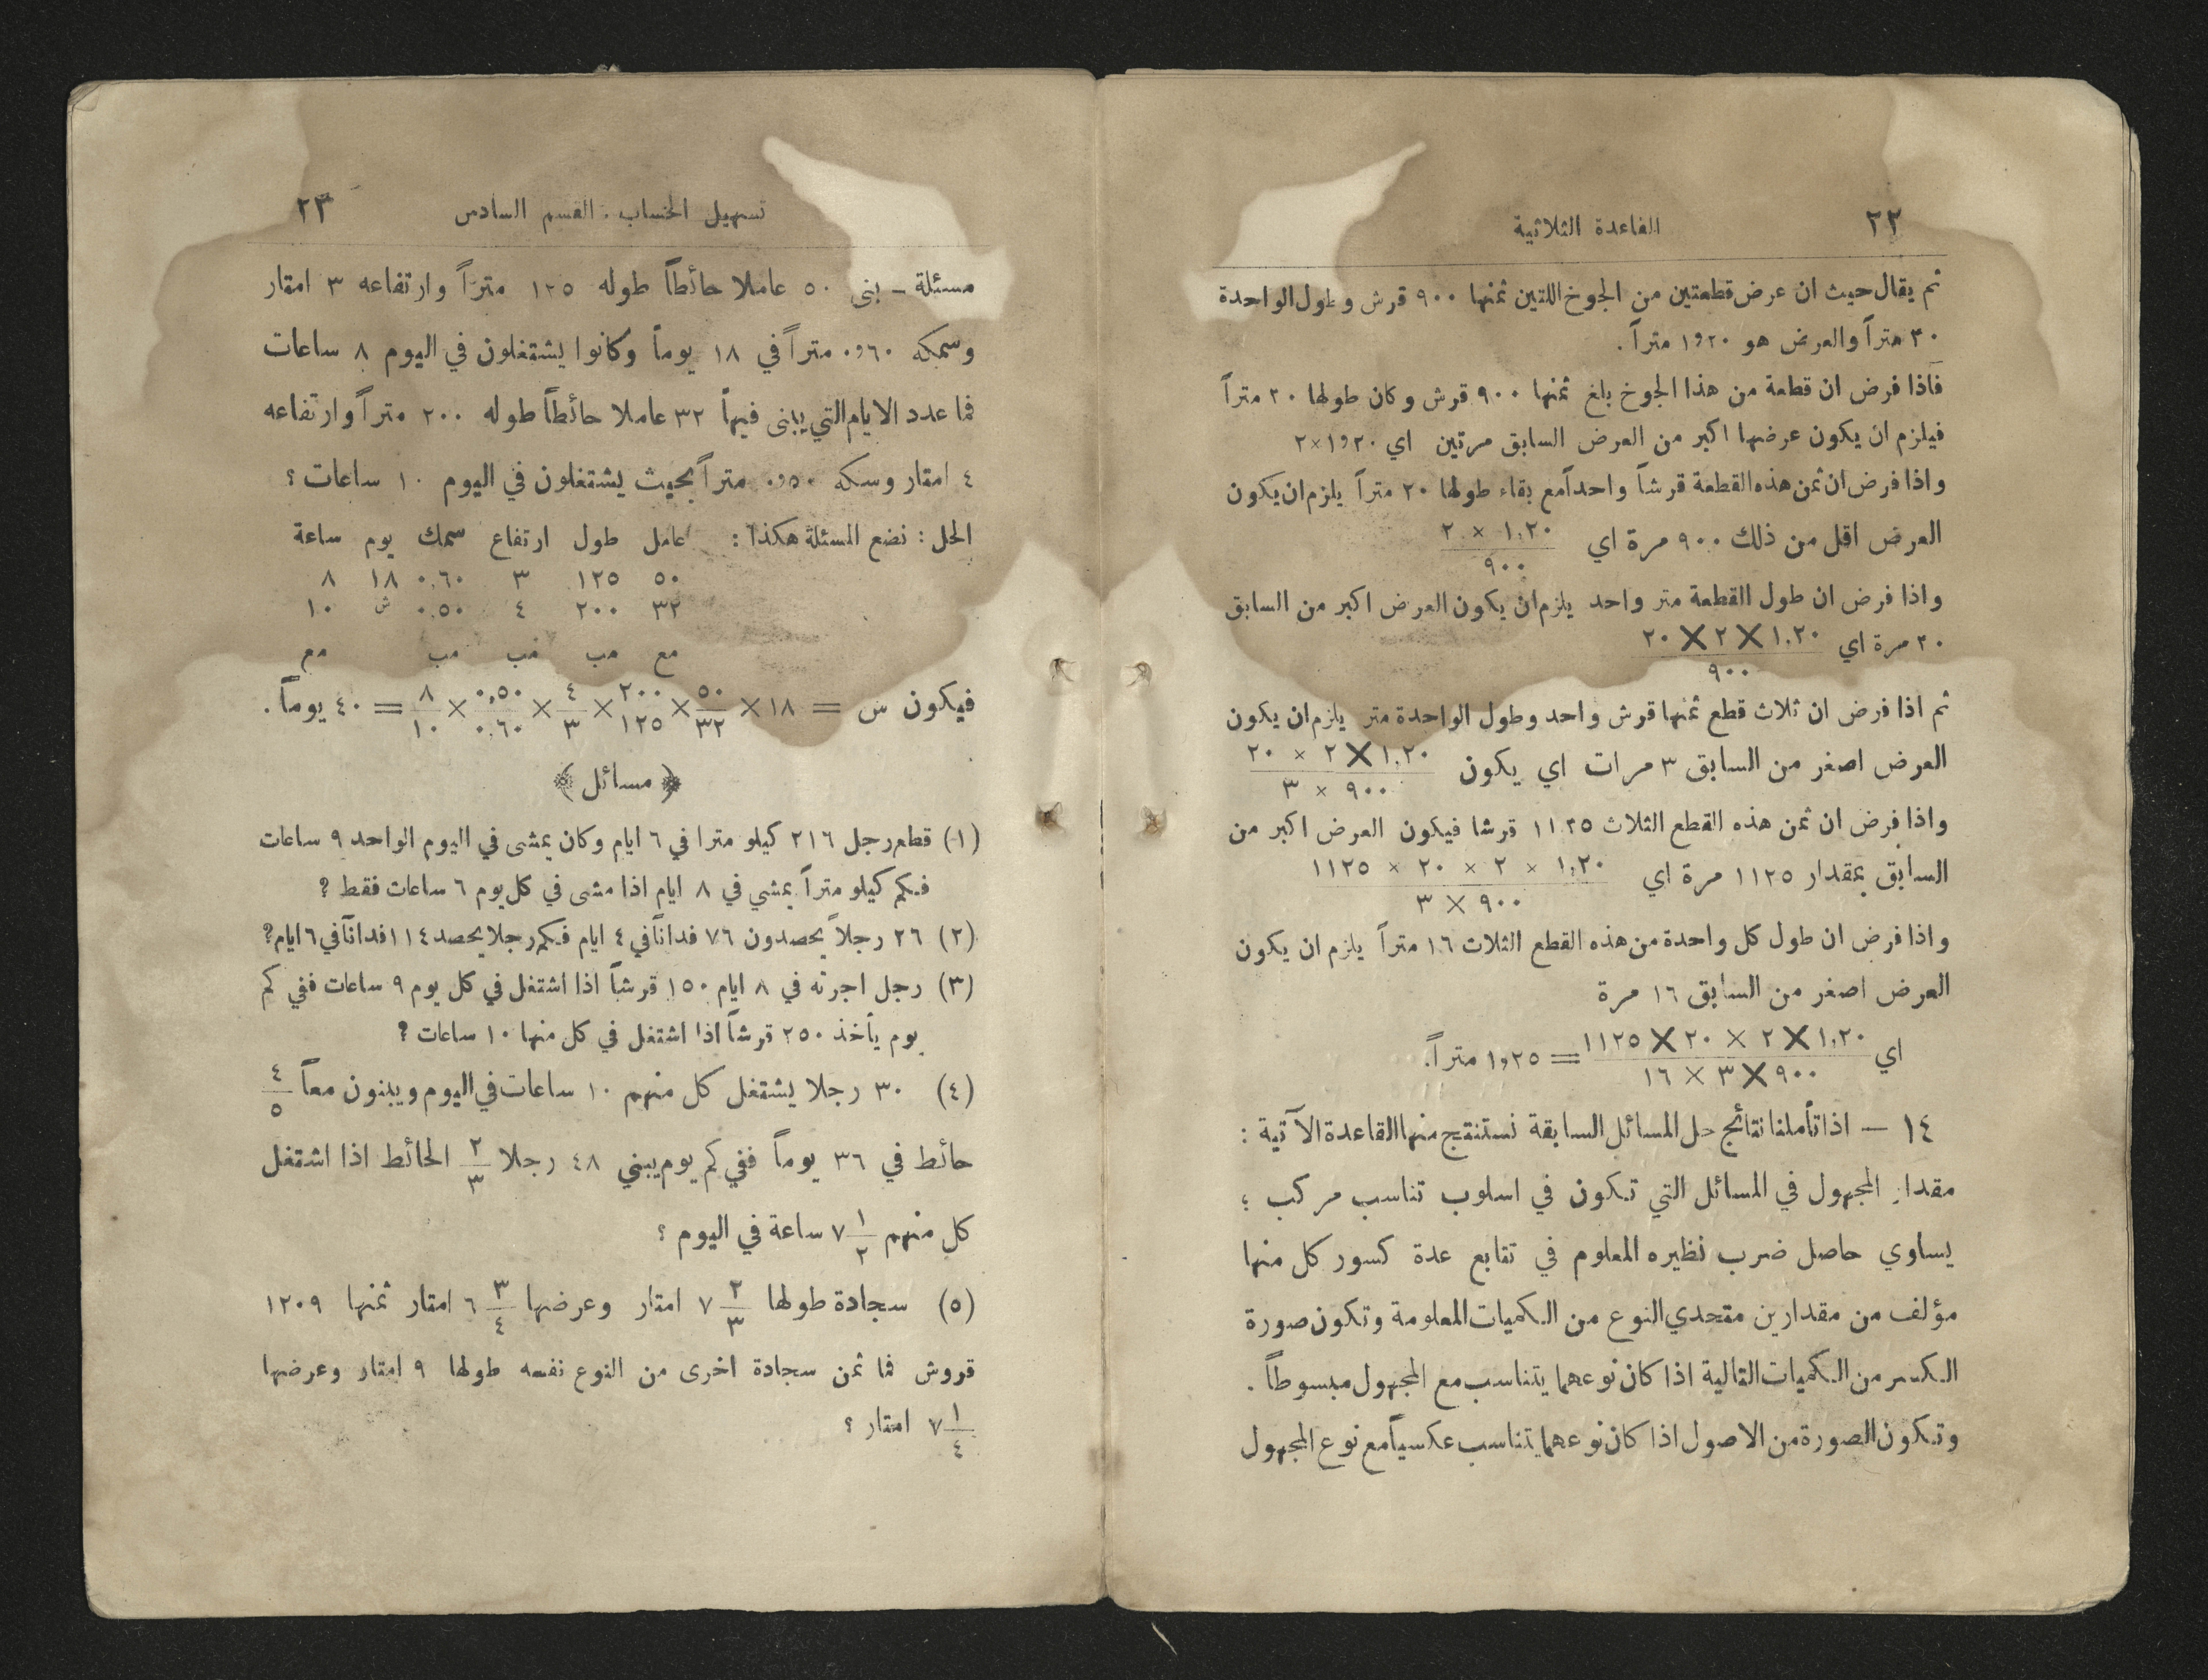 ٢٢ القاعدة الثلاثية
ثم يقال حيث ان عرض قطعتين من الجوخ اللتين ثمنها ٩٠٠ قرش وطول الواحدة
٤٠ متراً والعرض هو ١٫٢٠ متراً .
فاذا فرض ان قطعة من هذا الجوخ بلغ ثمنها ٩٠٠ قرش وكان طولها ٢٠ متراً
فيلزم ان يكون عرضها اكبر من العرض السابق مرتين اي ١٫٢٠×٢
واذا فرض ان ثمن هذه القطعة قرشاً واحداً مع بقاء طولها ٢٠ متراً يلزم ان يكون
العرض اقل من ذلك ٩٠٠ مرة اي ١.٢٠ × ٢ / ٩٠٠
واذا فرض ان طول القطعة متر واحد يلزم ان يكون العرض اكبر من السابق
٢٠ مرة اي ١.٢٠ × ٢ × ٢٠ / ٩٠٠
ثم اذا فرض ان ثلاث قطع ثمنها قرش واحد وطول الواحدة متر يلزم ان يكون
العرض اصغر من السابق ٣ مرات اي يكون ١.٢٠ × ٢ × ٢٠ / ٩٠٠ × ٣
واذا فرض ان ثمن هذه القطع الثلاث ١١٢٥ قرشا فيكون العرض اكبر من
السابق بمقدار ١١٢٥ مرة اي ١.٢٠ × ٢ × ٢٠ × ١١٢٥ / ٩٠٠ × ٣
واذا فرض ان طول كل واحدة من هذه القطع الثلاث ١٦ متراً يلزم ان يكون
العرض اصغر من السابق ١٦ مرة
اي ١.٢٠ × ٢ × ٢٠ × ١١٢٥ / ٩٠٠ × ٣ × ١٦ = ١٫٢٥ متراً.
١٤ — اذا تأملنا نتائج حل المسائل السابقة نستنتج منها القاعدة الآتية :
مقدار المجهول في المسائل التي تكون في اسلوب تناسب مركب ؛
يساوي حاصل ضرب نظيره المعلوم في تتابع عدة كسور كل منها
مؤلف من مقدارين متحدي النوع من الكميات المعلومة وتكون صورة
الكسر من الكميات التالية اذا كان نوعهما يتناسب مع المجهول مبسوطاً .
وتكون الصورة من الاصول اذا كان نوعهما يتناسب عكسياً مع نوع المجهول
تسهيل الحساب . القسم السادس ٢٣
مسئلة – بنى ٥٠ عاملا حائطاً طوله ١٢٥ متراً وارتفاعه ٣ امتار
وسمكه ٠٫٦٠ متراً في ١٨ يوماً وكانوا يشتغلون في اليوم ٨ ساعات
فما عدد الايام التي يبنى فيها ٣٢ عاملا حائطاً طوله ٢٠٠ متراً وارتفاعه
٤ امتار وسكه ٠٫٥٠ متراً بحيث يشتغلون في اليوم ١٠ ساعات ؟
الحل : نضع المسئلة هكذا : عامل طول ارتفاع سمك يوم ساعة
٥٠ ١٢٥ ٣ ٠.٦٠ ١٨ ٨
٣٢ ٢٠٠ ٤ ٠.٥٠ ش ١٠
مع مب مب مب مع
فيكون س = ١٨ × ٥٠/٣٢ × ٢٠٠/١٢٥ × ٤/٣ × ٠.٥٠/٠.٦٠ × ٨/١٠ = ٤٠ يوماً .
﴿ مسائل ﴾
(١) قطع رجل ٢١٦ كيلو مترا في ٦ ايام وكان يمشى في اليوم الواحد ٩ ساعات
فكم كيلو متراً يمشي في ٨ ايام اذا مشى في كل يوم ٦ ساعات فقط ؟
(٢) ٢٦ رجلاً يحصدون ٧٦ فداناً في ٤ ايام فكم رجلا يحصد ١١٤ فداناً في ٦ ايام؟
(٣) رجل اجرته في ٨ ايام ١٥٠ قرشاً اذا اشتغل في كل يوم ٩ ساعات ففي كم
يوم يأخذ ٢٥٠ قرشاً اذا اشتغل في كل منها ١٠ ساعات ؟
(٤) ٣٠ رجلا يشتغل كل منهم ١٠ ساعات في اليوم ويبنون معاً ٤/٥
حائط في ٣٦ يوماً ففي كم يوم يبني ٤٨ رجلا ٢/٣ الحائط اذا اشتغل
كل منهم ٧ ١/٢ ساعة في اليوم ؟
(٥) سجادة طولها ٧ ٢/٣ امتار وعرضها ٦ ٣/٤ امتار ثمنها ١٢٠٩
قروش فما ثمن سجادة اخرى من النوع نفسه طولها ٩ امتار وعرضها
٧ ١/٤ امتار ؟